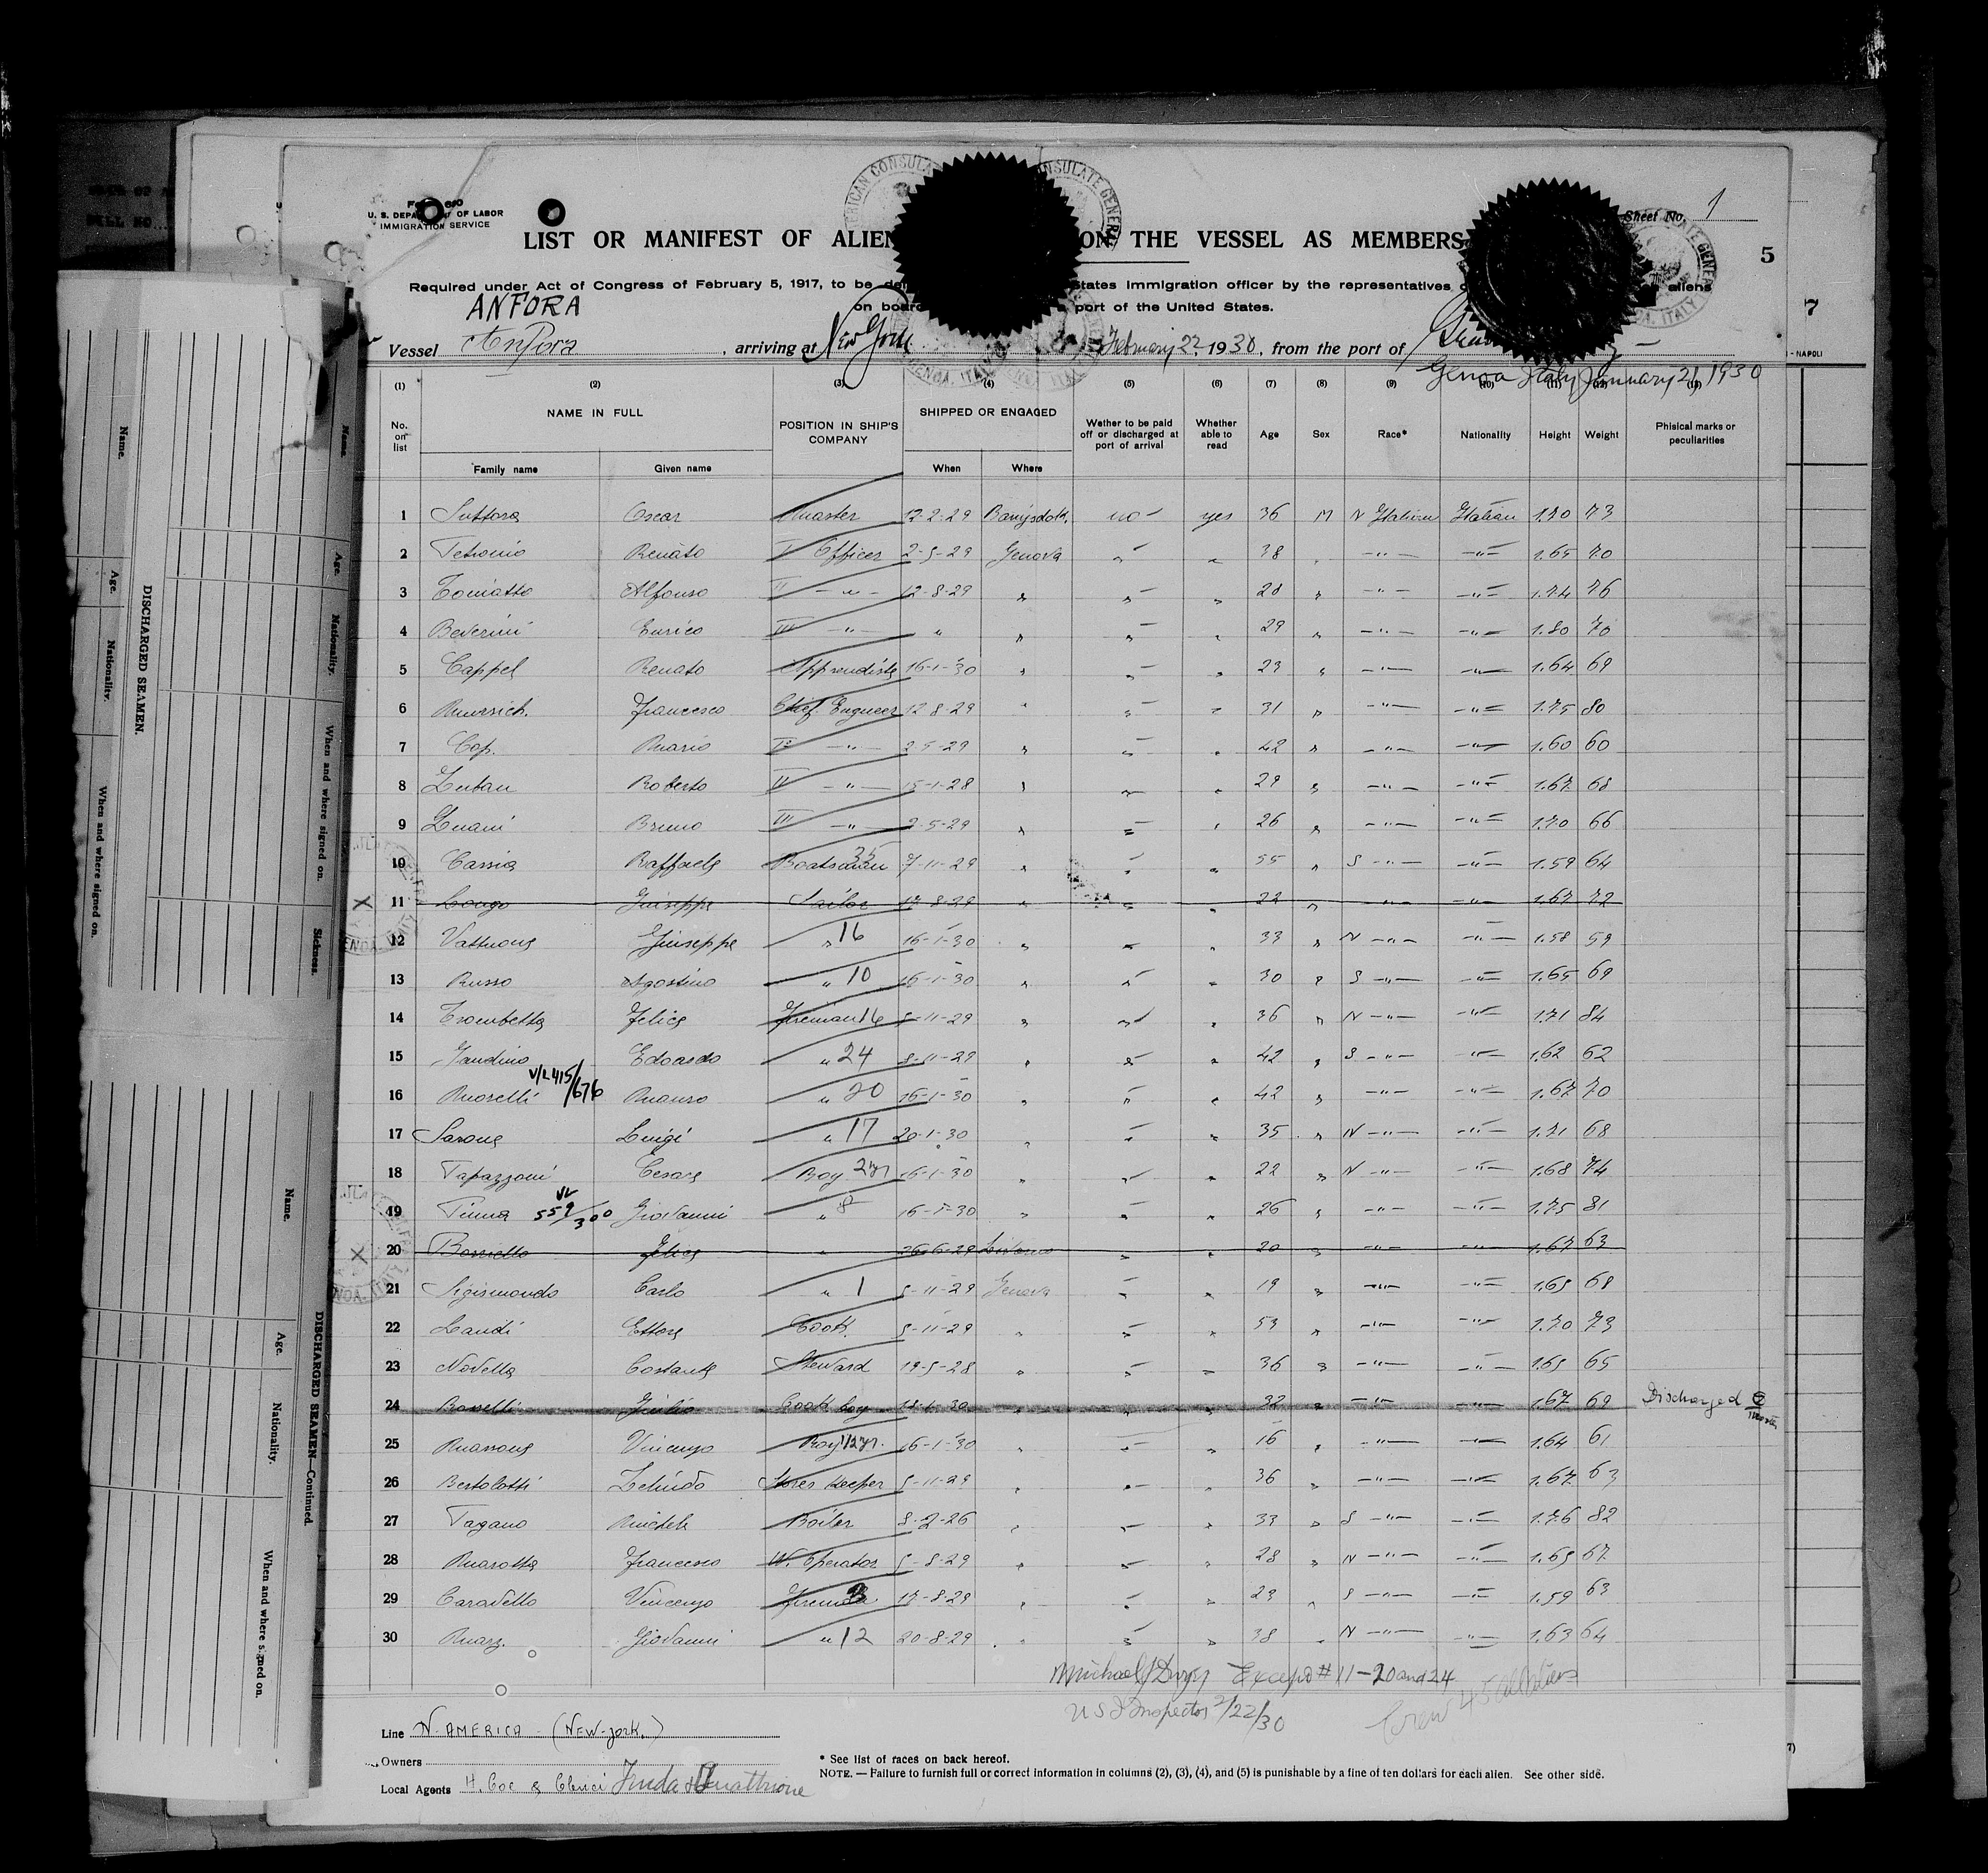 U. S. DEPARTMENT OF LABOR
IMMIGRATION SERVICE
Sheet No. 1
LIST OR MANIFEST OF ALIEN ON THE VESSEL AS MEMBERS
5
Required under Act of Congress of February 5, 1917, to be States Immigration officer by the representatives aliens
on board port of the United States.
ANFORA
Vessel Anfora, arriving at New York February 22, 1930, from the port of
Genoa Italy January 21, 1930
(1) (2) (3) (4) (5) (6) (7) (8) (9) (10) (11) (12) (13)
No. on list NAME IN FULL POSITION IN SHIP'S COMPANY SHIPPED OR ENGAGED Wether to be paid off or discharged at port of arrival Whether able to read Age Sex Race* Nationality Height Weight Phisical marks or peculiarities
Family name Given name When Where
1 Suttora Oscar Master 12-2-29 no yes 36 M N Italian Italian 1.70 73
2 Petronio Renato I Officer 2-5-29 Genova " " 38 " -"- -"- 1.65 70
3 Alfonso II -"- 12-8-29 " " " 28 " -"- -"- 1.74 76
4 Beverini Enrico III -"- " " " " 29 " -"- -"- 1.80 70
5 Cappel Renato Apprendista 16-1-30 " " " 23 " -"- -"- 1.64 69
6 Francesco Chief Engineer 12-8-29 " " " 31 " -"- -"- 1.75 80
7 Cop. Mario -"- 2-5-29 " " " 42 " -"- -"- 1.60 60
8 Roberto II -"- 15-1-28 " " " 29 " -"- -"- 1.67 68
9 Bruno III -"- 2-5-29 " " " 26 " -"- -"- 1.70 66
10 Cassia Raffaele Boatsman 35 7-11-29 " " " 55 " S -"- -"- 1.59 64
11 Longo Giuseppe Sailor 17-8-29 " " " 22 " -"- -"- 1.67 72
12 Vattuone Giuseppe " 16 16-1-30 " " " 33 " N -"- -"- 1.58 59
13 Russo Agostino " 10 16-1-30 " " " 30 " S -"- -"- 1.65 69
14 Trombetta Felice Fireman 16 5-11-29 " " 36 " N -"- -"- 1.71 84
15 Edoardo " 24 8-11-29 " " " 42 " S -"- -"- 1.62 62
V/L 415/676
16 Morelli Mauro " 20 16-1-30 " " " 42 " -"- -"- 1.67 70
17 Sarone Luigi " 17 20-1-30 " " " 35 " N -"- -"- 1.71 68
18 Papazzoni Cesare Boy 2 yr 16-1-30 " " 22 " N -"- -"- 1.68 74
19 Pinna VL 559/300 Giovanni " 8 16-1-30 " " " 26 " -"- -"- 1.75 81
20 Felice " 26-6-29 Livorno " " 20 " -"- -"- 1.67 63
21 Sigismondo Carlo " 1 5-11-29 Genova " " 19 " -"- -"- 1.65 68
22 Landi Ettore Cook 5-11-29 " " " 53 " -"- -"- 1.70 73
23 Novella Costante Steward 19-5-28 " " " 36 " -"- -"- 1.65 65
24 Giulio Cook boy " " " 32 " -"- -"- 1.67 69 Discharged
25 Massone Vincenzo Boy 1/2 yr. 16-1-30 " " " 16 " -"- -"- 1.64 61
26 Bertolotti Zelindo Stores Keeper 5-11-29 " " " 36 " -"- -"- 1.67 63
27 Pagano Michele Boiler 8-2-26 " " " 33 " S -"- -"- 1.76 82
28 Marotta Francesco W. Operator 5-8-29 " " " 28 " N -"- -"- 1.65 67
29 Caravello Vincenzo Fireman 17-8-29 " " " 23 " S -"- -"- 1.59 63
30 Giovanni " 12 20-8-29 " " " 38 " N -"- -"- 1.63 64
Michael J Except # 11-20 and 24
U S I Inspector 2/22/30
Crew 45
Line N. AMERICA - (NEW-York.)
Owners
Local Agents H. Coe & Clerici
* See list of races on back hereof.
NOTE. — Failure to furnish full or correct information in columns (2), (3), (4), and (5) is punishable by a fine of ten dollars for each alien. See other side.
DISCHARGED SEAMEN.
Name. Age. Nationality. When and where signed on. Sickness.
DISCHARGED SEAMEN—Continued.
Name. Age. Nationality. When and where signed on.